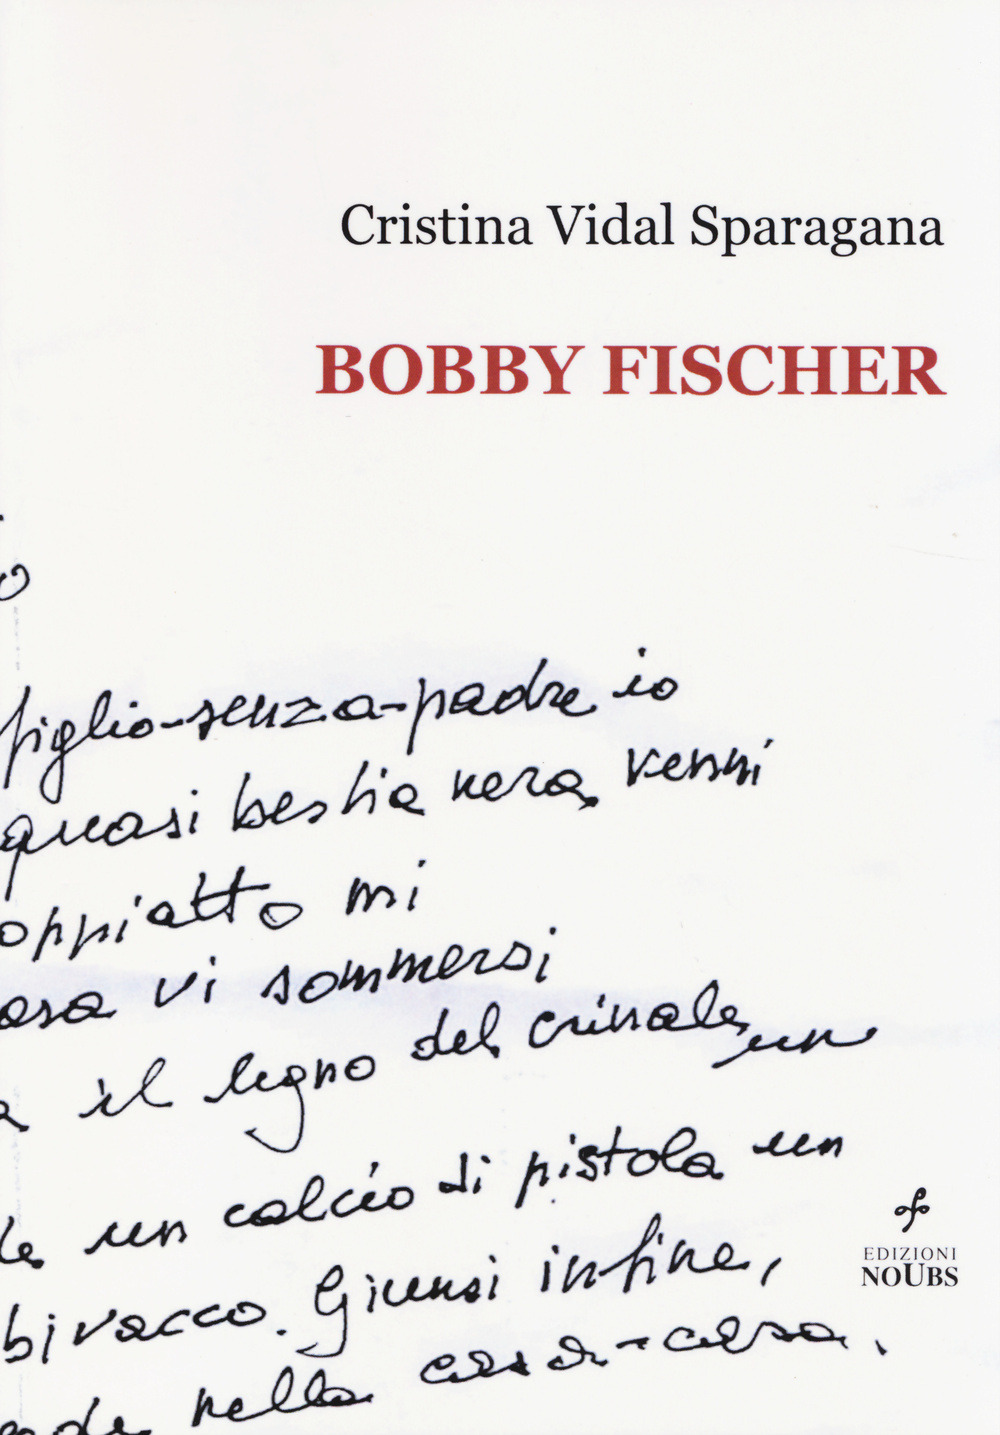 Cristina Vidal Sparagana
BOBBY FISCHER
o
figlio-senza-padre io
quasi bestia nera, venni
oppiatto mi
asa vi sommersi
a il legno del crinale, un
le, un calcio di pistola un
bivacco. Giunsi infine,
nella casa-casa.
EDIZIONI
NOUBS